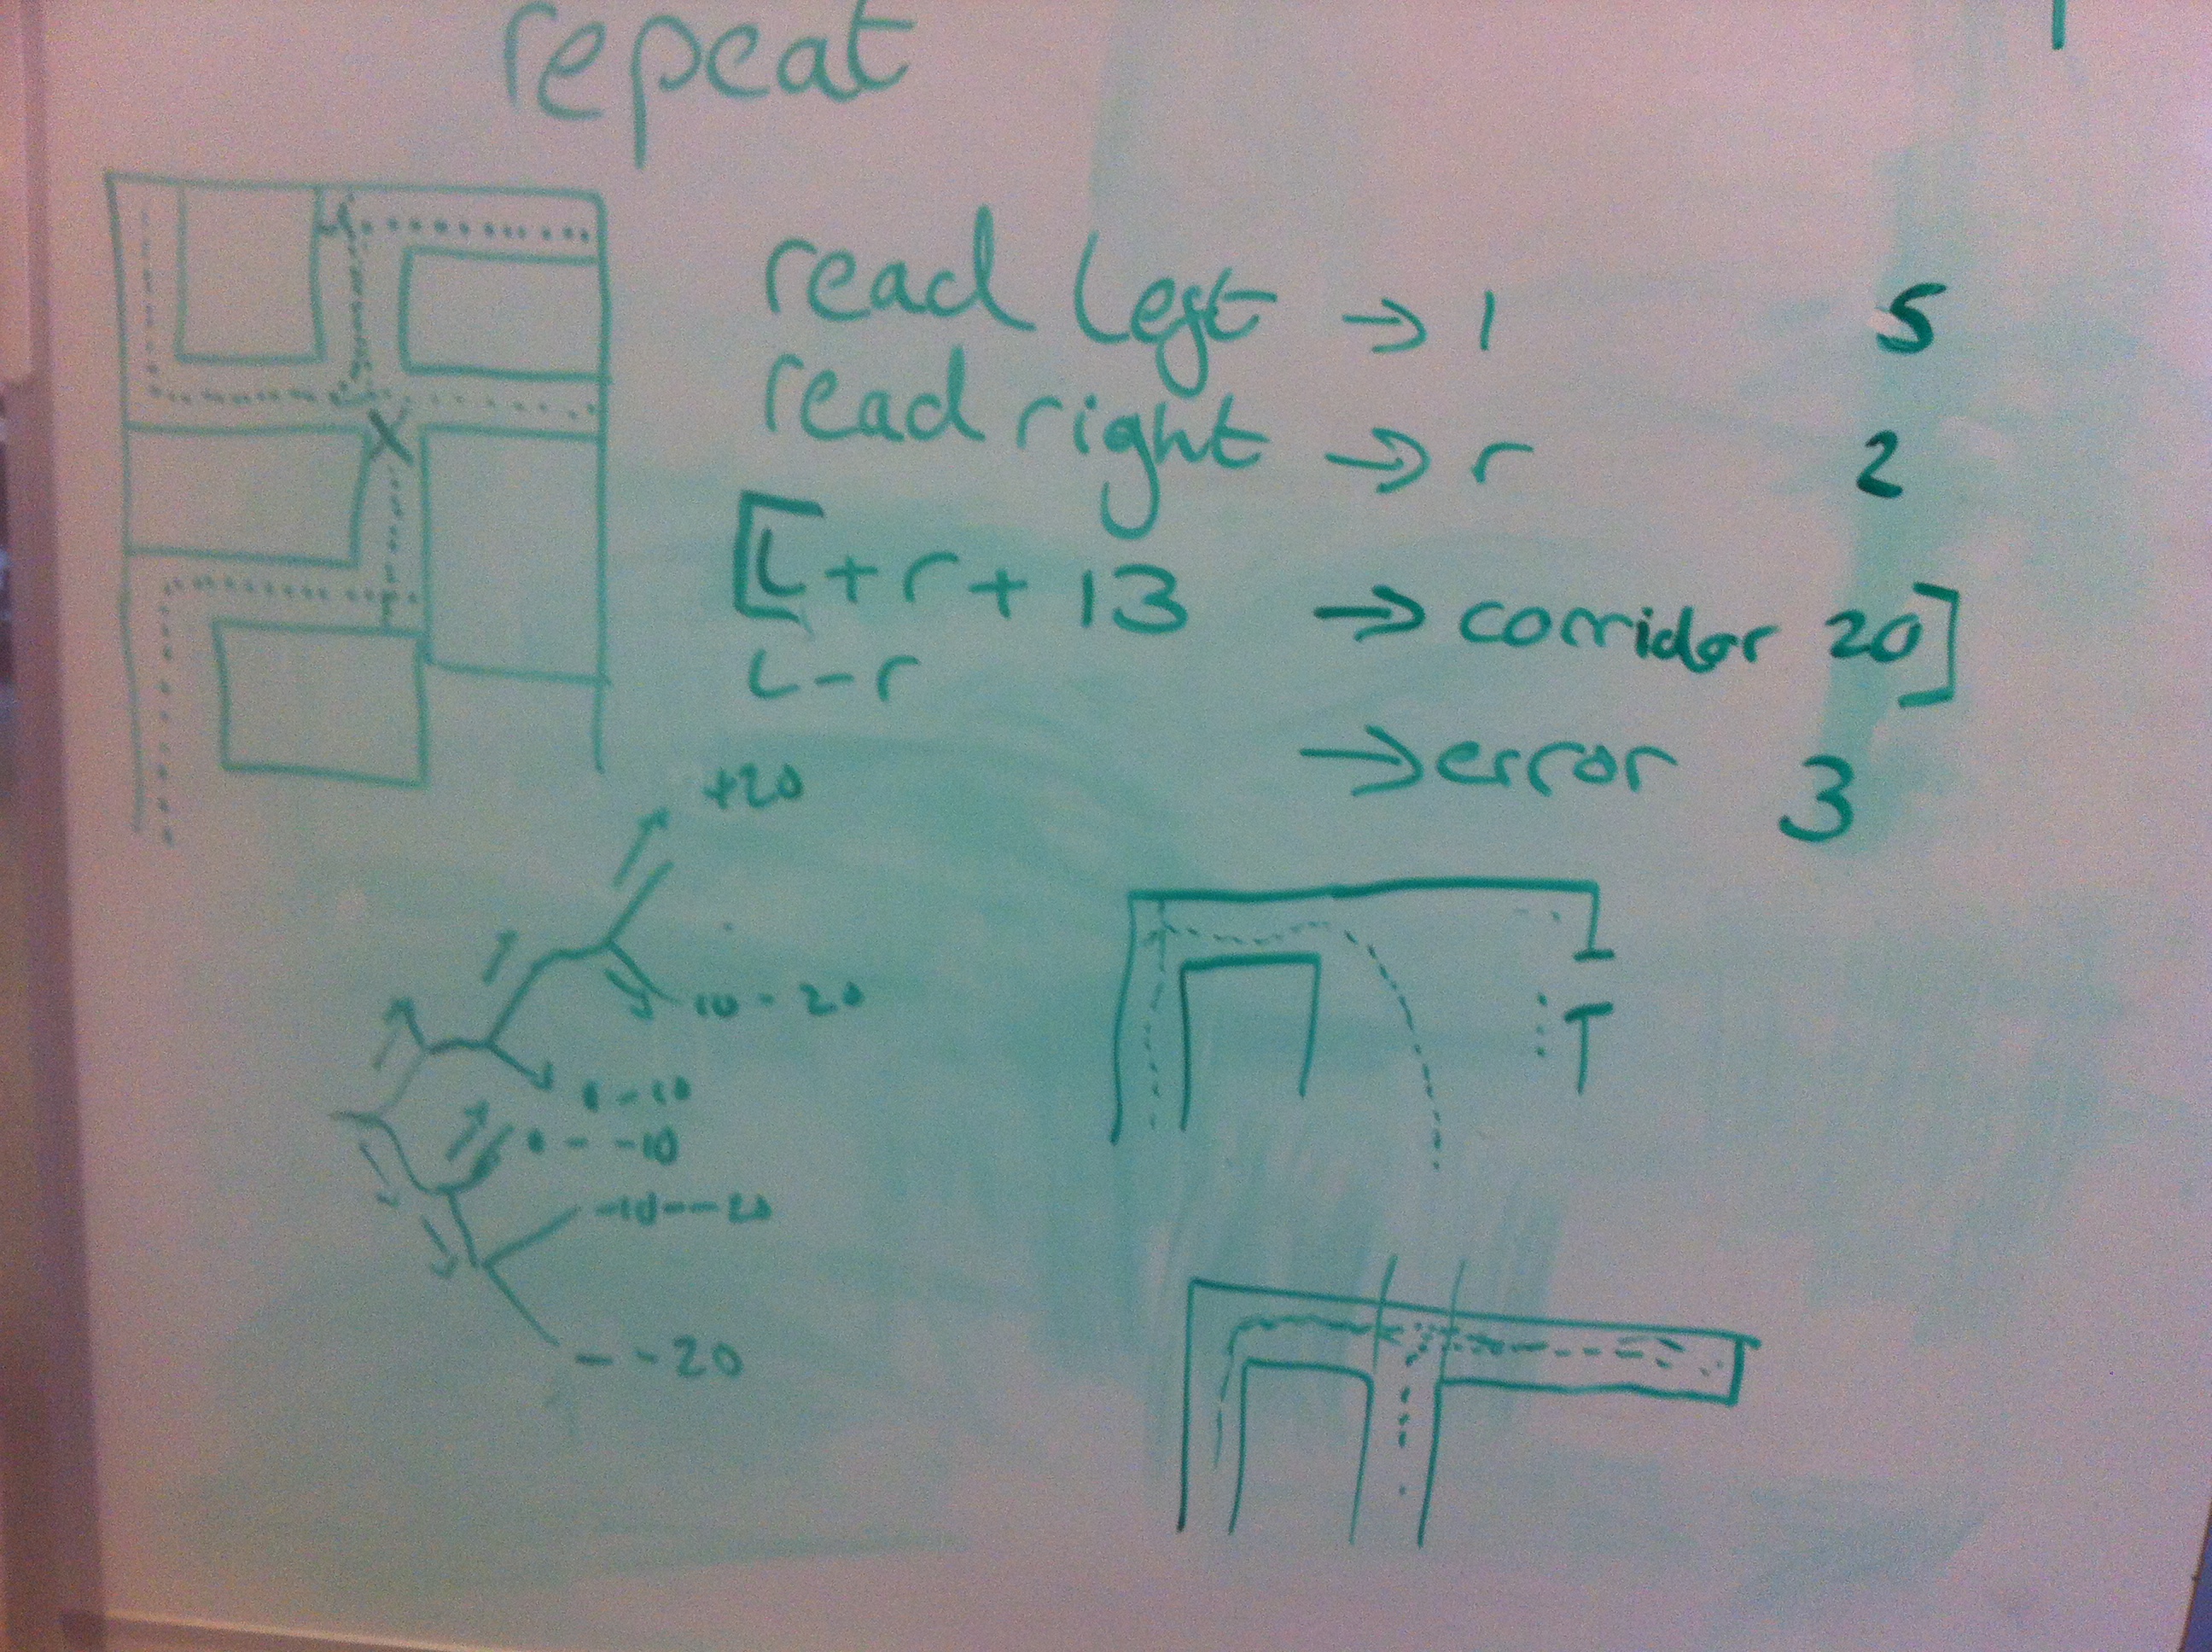 repeat
read left → l 5
read right → r 2
[L + r + 13 → corridor 20]
L - r
→ error 3
+20
10 - 20
- 10
- -10
-10 - -20
- -20